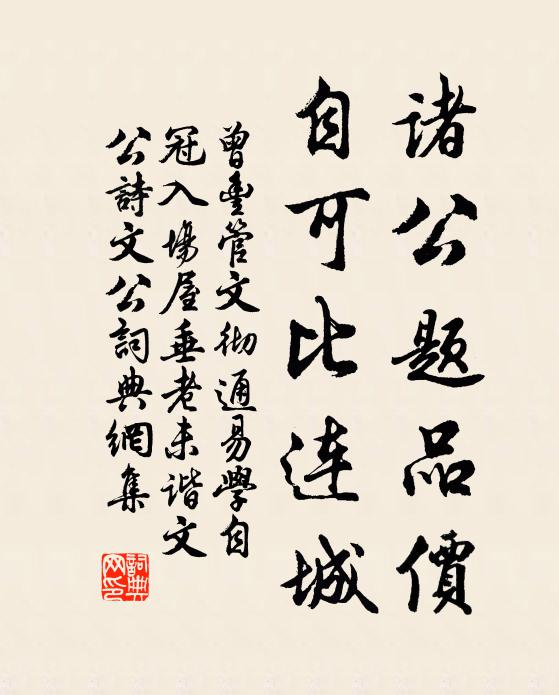 諸公題品價
自可比连城
曾豊管文彻通易學自
冠入場屋垂老未谐文
公詩文公詞典網集
詞典网印